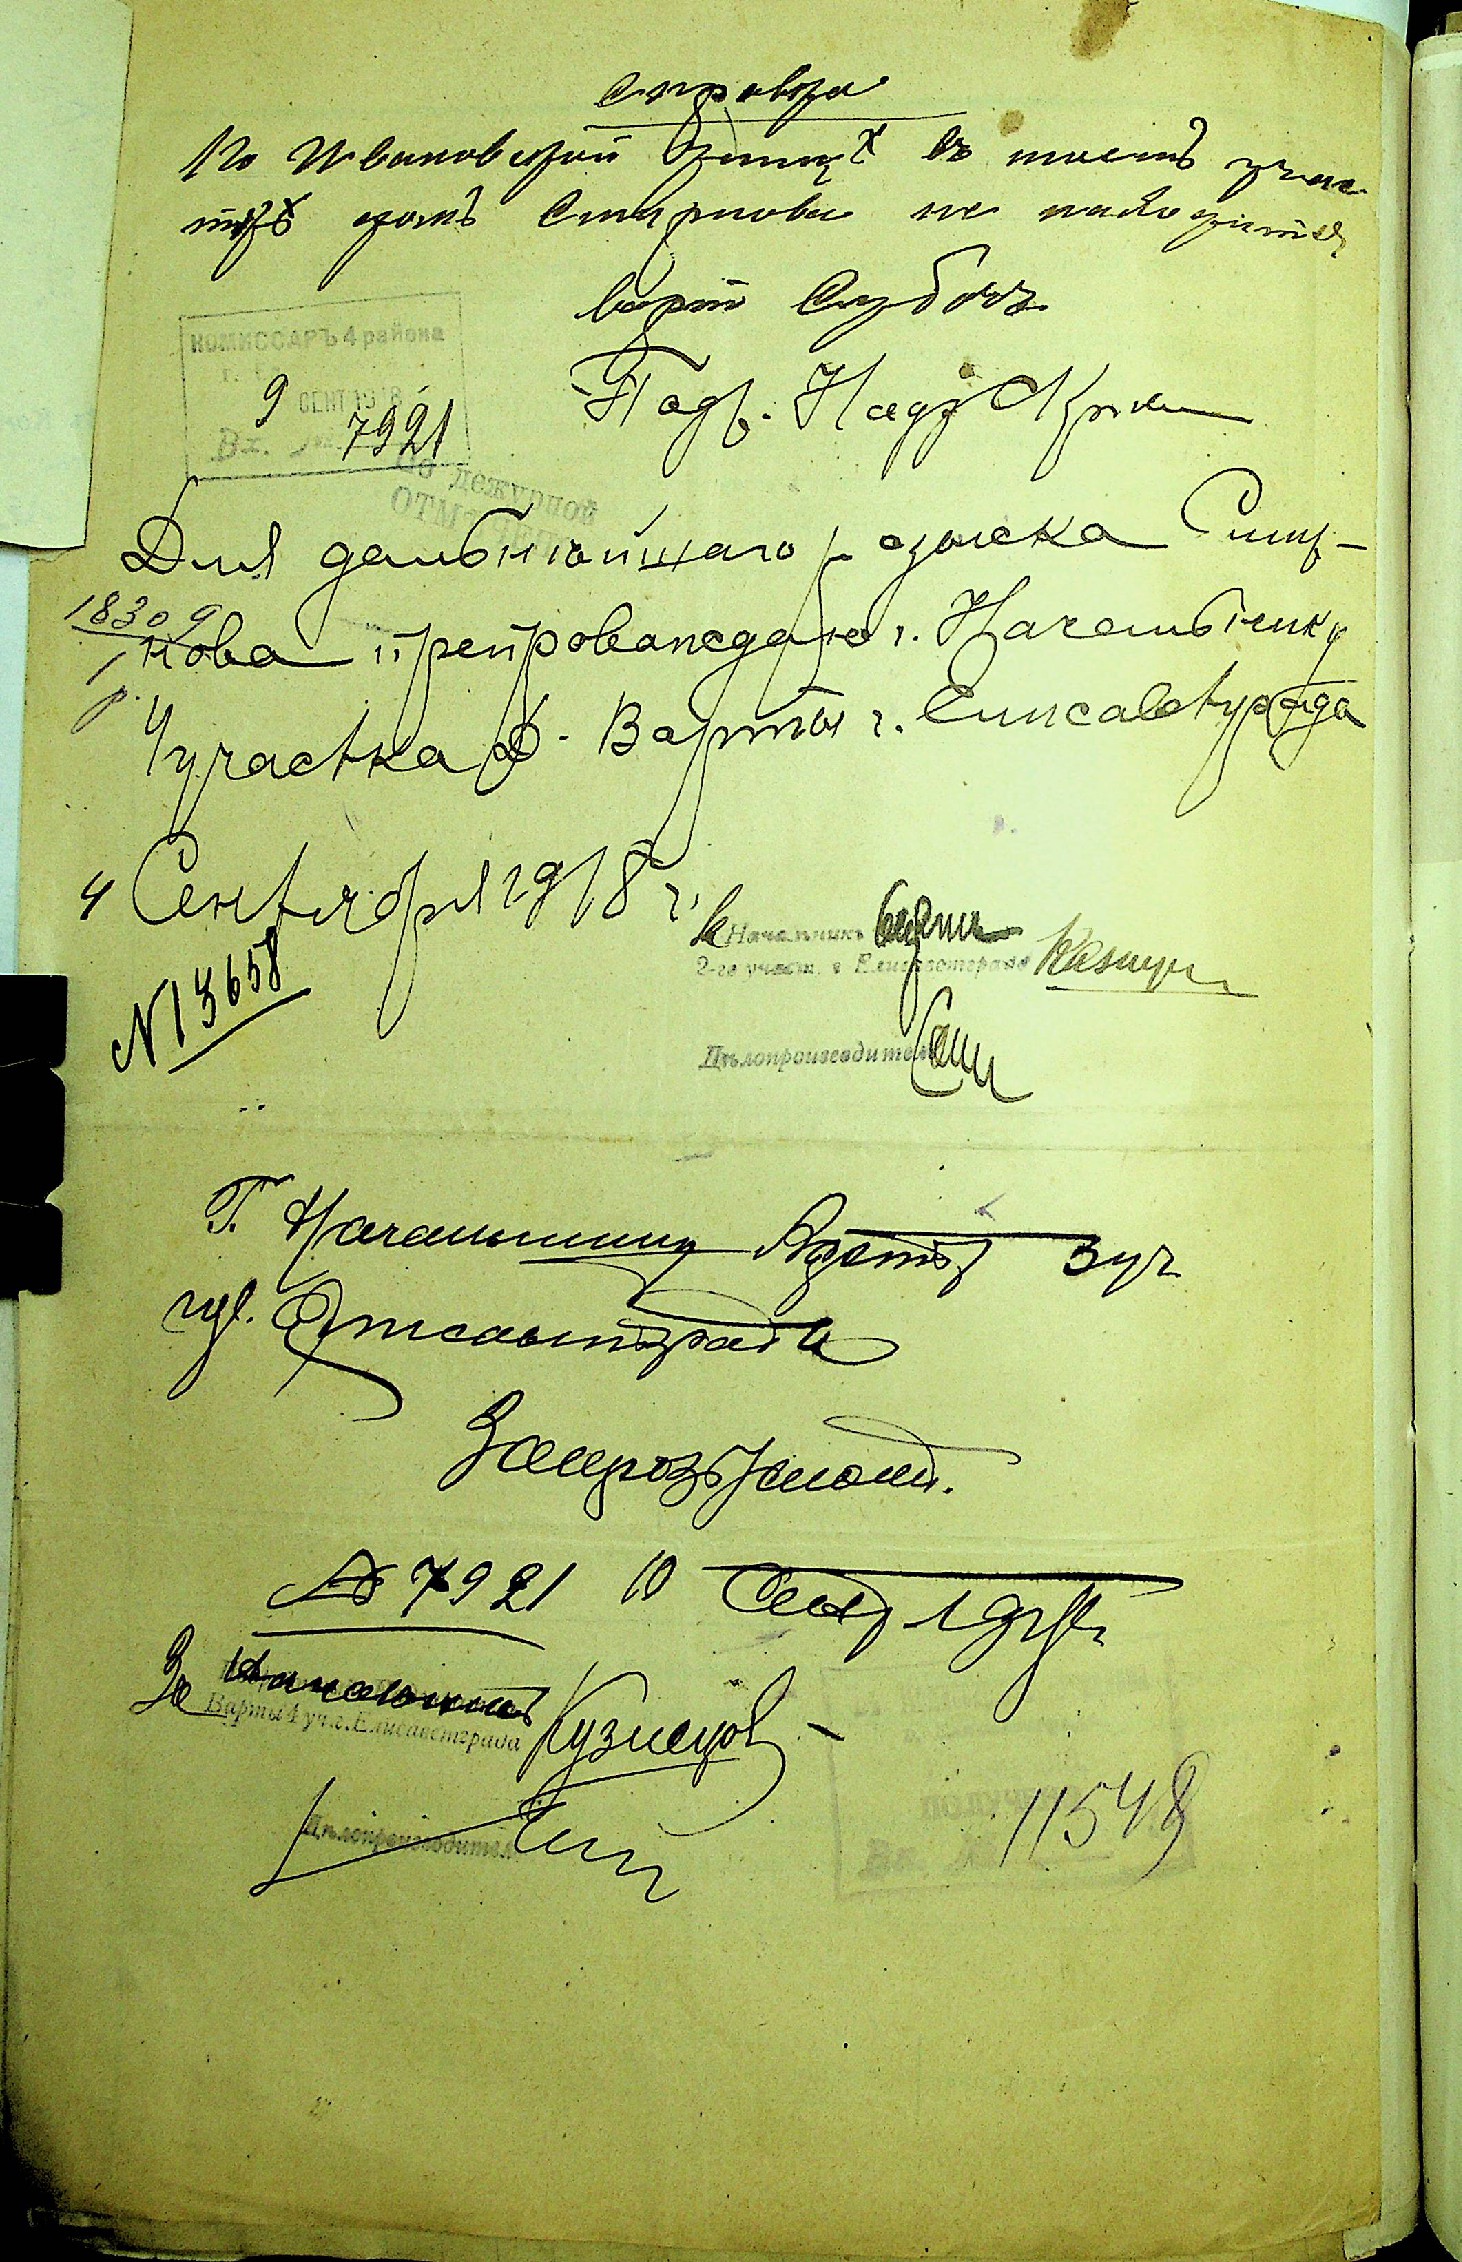 Справка
По Ивановской улицѣ въ шестъ учас
ткѣ домъ Смирнова не находится
варт Субочъ
Подв. Надз
КОМИССАРЪ 4 района
9 СЕНТ 1918
Вх. № 7921
По дежурной
ОТМ
Для дальнѣйшаго розыска Смир-
18309
1
р.
нова препровождаю г. Начальнику
4 участка Д. Варты г. Елисаветграда
4 Сентября 1918 г.
N 13658
Начальникъ Варты
2-го участ. г. Елисаветграда
Дѣлопроизводитель
Г. Начальнику Варты 3 уч
гор. Елисаветграда
№ 7921 10 Сент 1918 г
За Начальникъ
Варты 4 уч. г. Елисаветграда Кузнецов
Дѣлопроизводитель
Вх. 11548